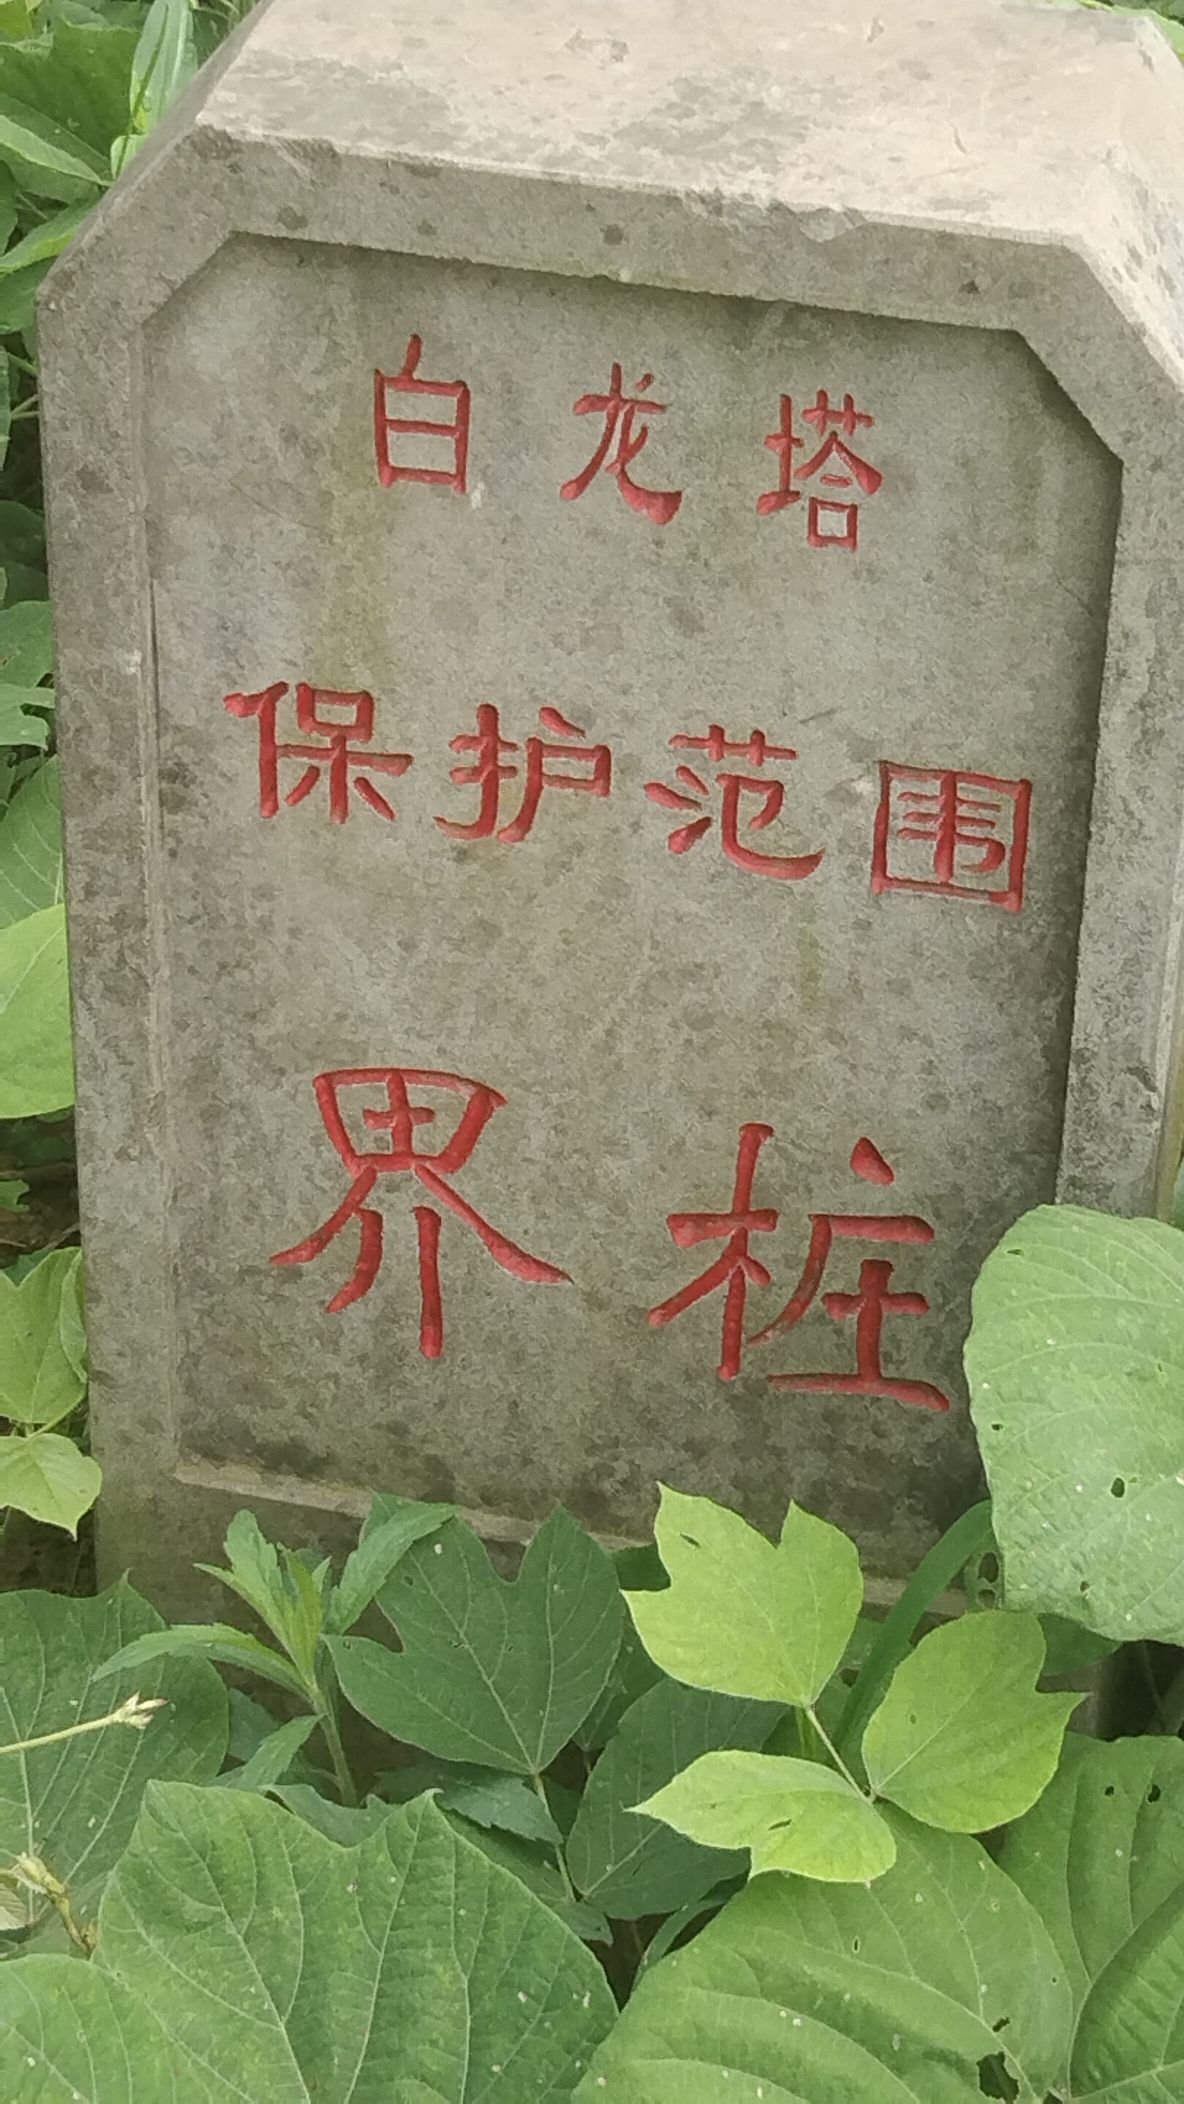 白龙塔
保护范围
界桩